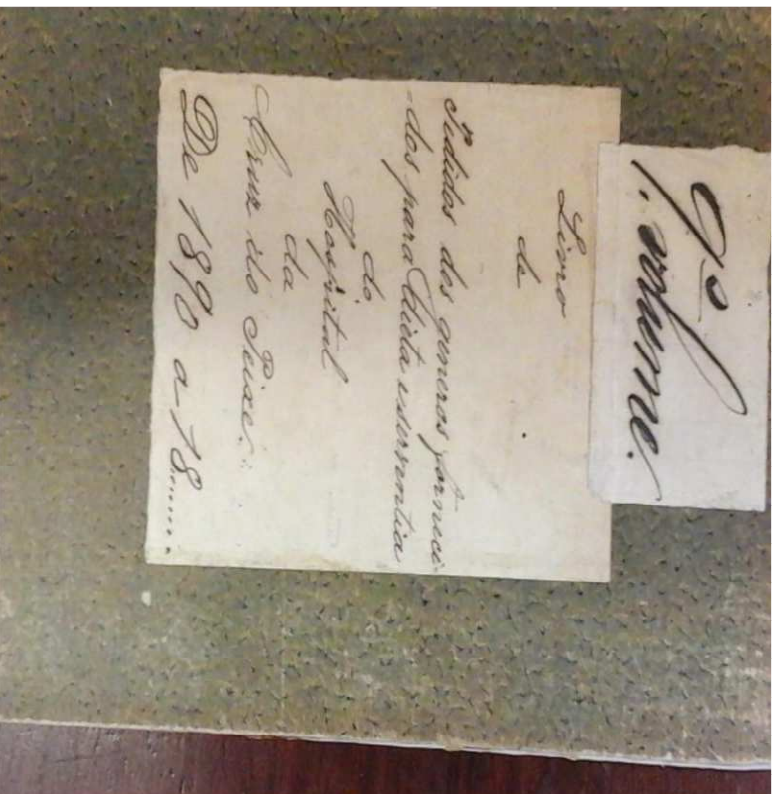 9º
volume.
Livro
de
Pedidos dos generos forneci-
-dos para dieta e serventia
do
Hospital
da
Cruz do Peixe.
De 1890 a 18......